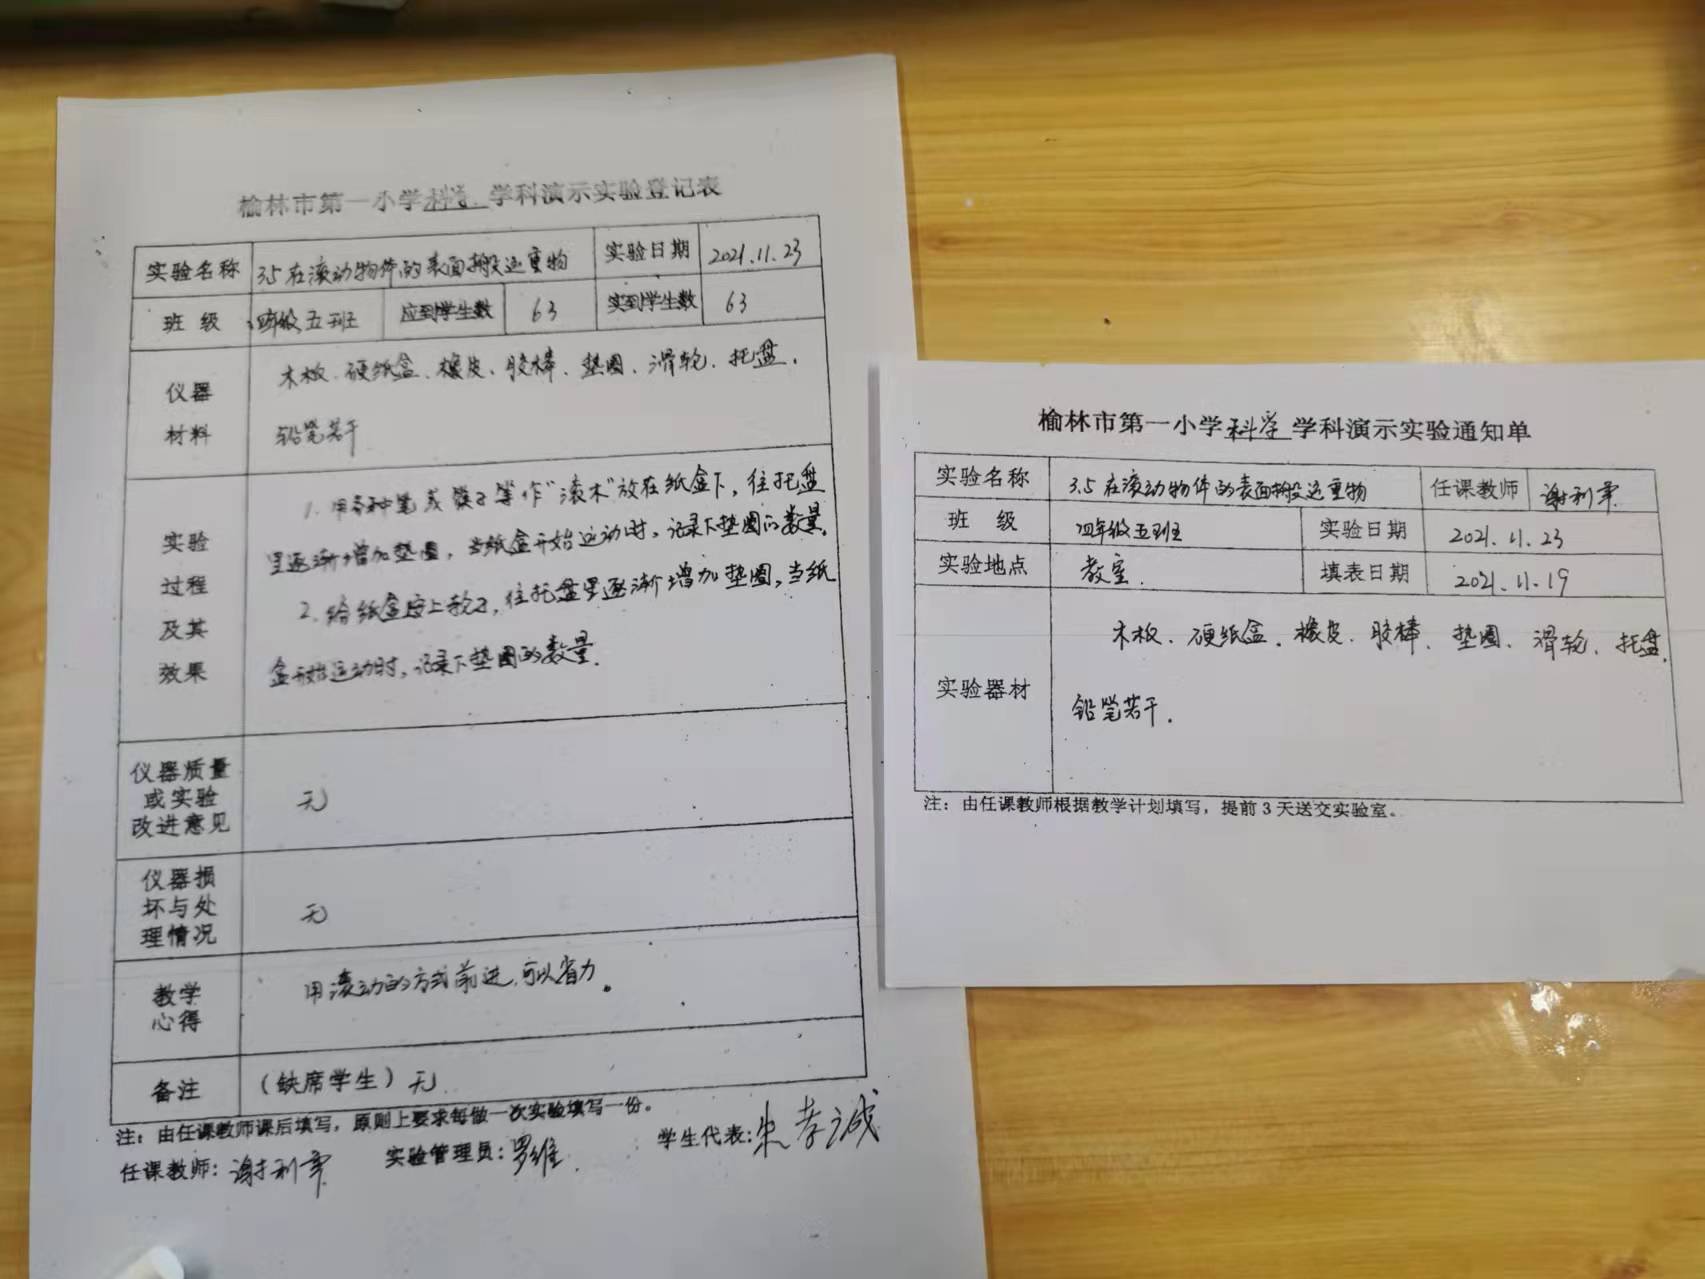 榆林市第一小学科学学科演示实验登记表
实验名称 3.5在滚动物体的表面搬运重物 实验日期 2021.11.23
班 级 四年级五班 应到学生数 63 实到学生数 63
仪器
材料
木板、硬纸盒、橡皮、胶棒、垫圈、滑轮、托盘、
铅笔若干
实验
过程
及其
效果
1. 用各种笔或筷子等作“滚木”放在纸盒下,往托盘
里逐渐增加垫圈,当纸盒开始运动时,记录下垫圈的数量.
2. 给纸盒安上轮子,往托盘里逐渐增加垫圈,当纸
盒开始运动时,记录下垫圈的数量.
仪器质量
或实验
改进意见
无
仪器损
坏与处
理情况
无
教学
心得
用滚动的方式前进,可以省力。
备注 (缺席学生)无
注:由任课教师课后填写,原则上要求每做一次实验填写一份。
任课教师:谢利军 实验管理员:罗维 学生代表:朱孝诚
榆林市第一小学科学学科演示实验通知单
实验名称 3.5在滚动物体的表面搬运重物 任课教师 谢利军
班 级 四年级五班 实验日期 2021.11.23
实验地点 教室. 填表日期 2021.11.19
实验器材
木板、硬纸盒、橡皮、胶棒、垫圈、滑轮、托盘、
铅笔若干.
注:由任课教师根据教学计划填写,提前3天送交实验室。